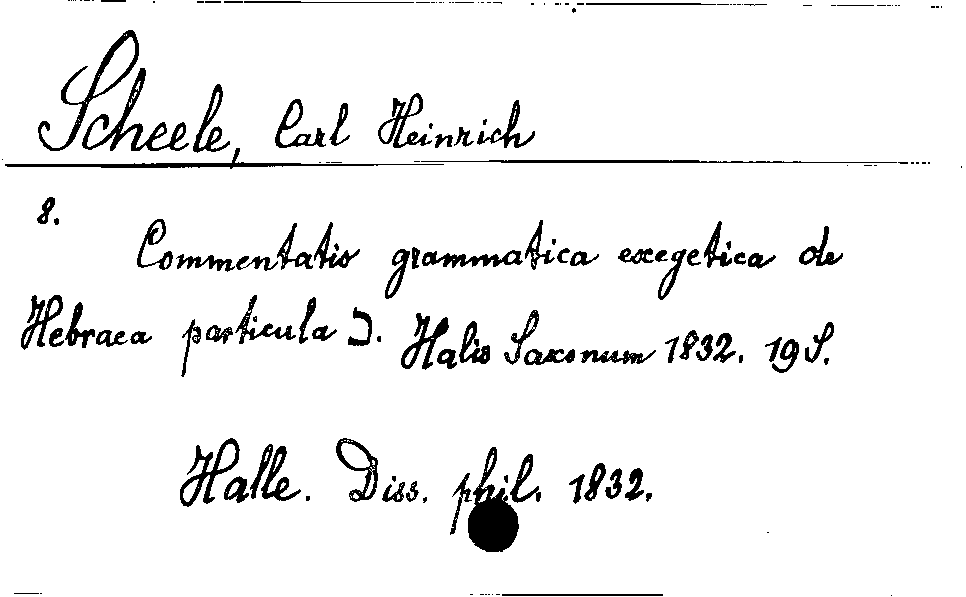 Scheele, Carl Heinrich
8.
Commentatio grammatica exegetica de
Hebraea particula כ. Halis Saxonum 1832. 19 S.
Halle. Diss. phil. 1832.